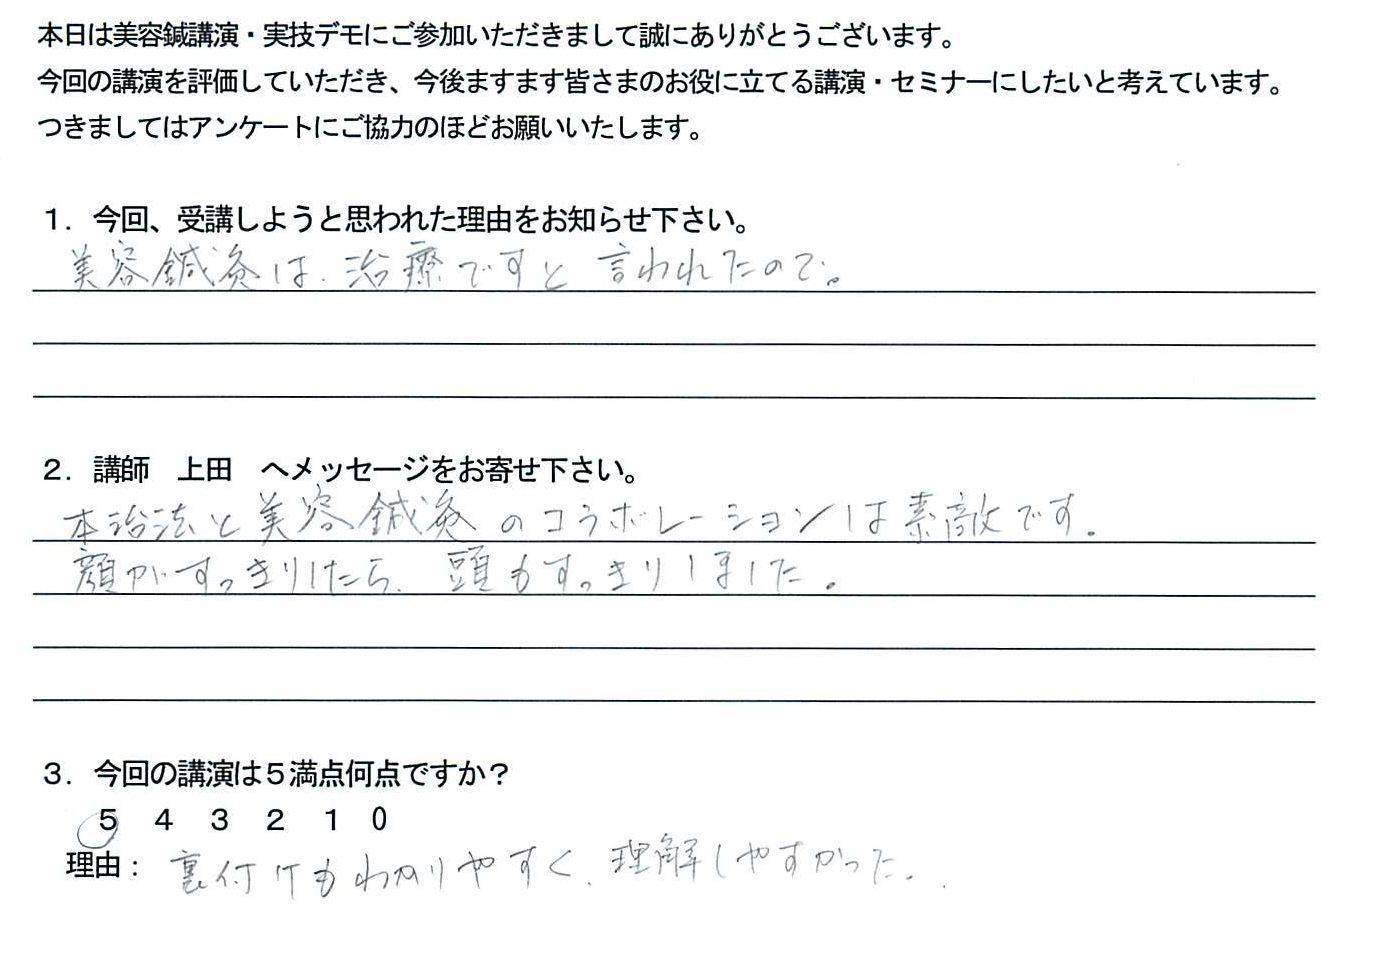 本日は美容鍼講演・実技デモにご参加いただきまして誠にありがとうございます。
今回の講演を評価していただき、今後ますます皆さまのお役に立てる講演・セミナーにしたいと考えています。
つきましてはアンケートにご協力のほどお願いいたします。
1．今回、受講しようと思われた理由をお知らせ下さい。
美容鍼灸は、治療ですと言われたので。
2．講師　上田　へメッセージをお寄せ下さい。
本治法と美容鍼灸のコラボレーションは素敵です。
顔がすっきりしたら、頭もすっきりしました。
3．今回の講演は５満点何点ですか？
5　4　3　2　1　0
理由：裏付けもわかりやすく、理解しやすかった。